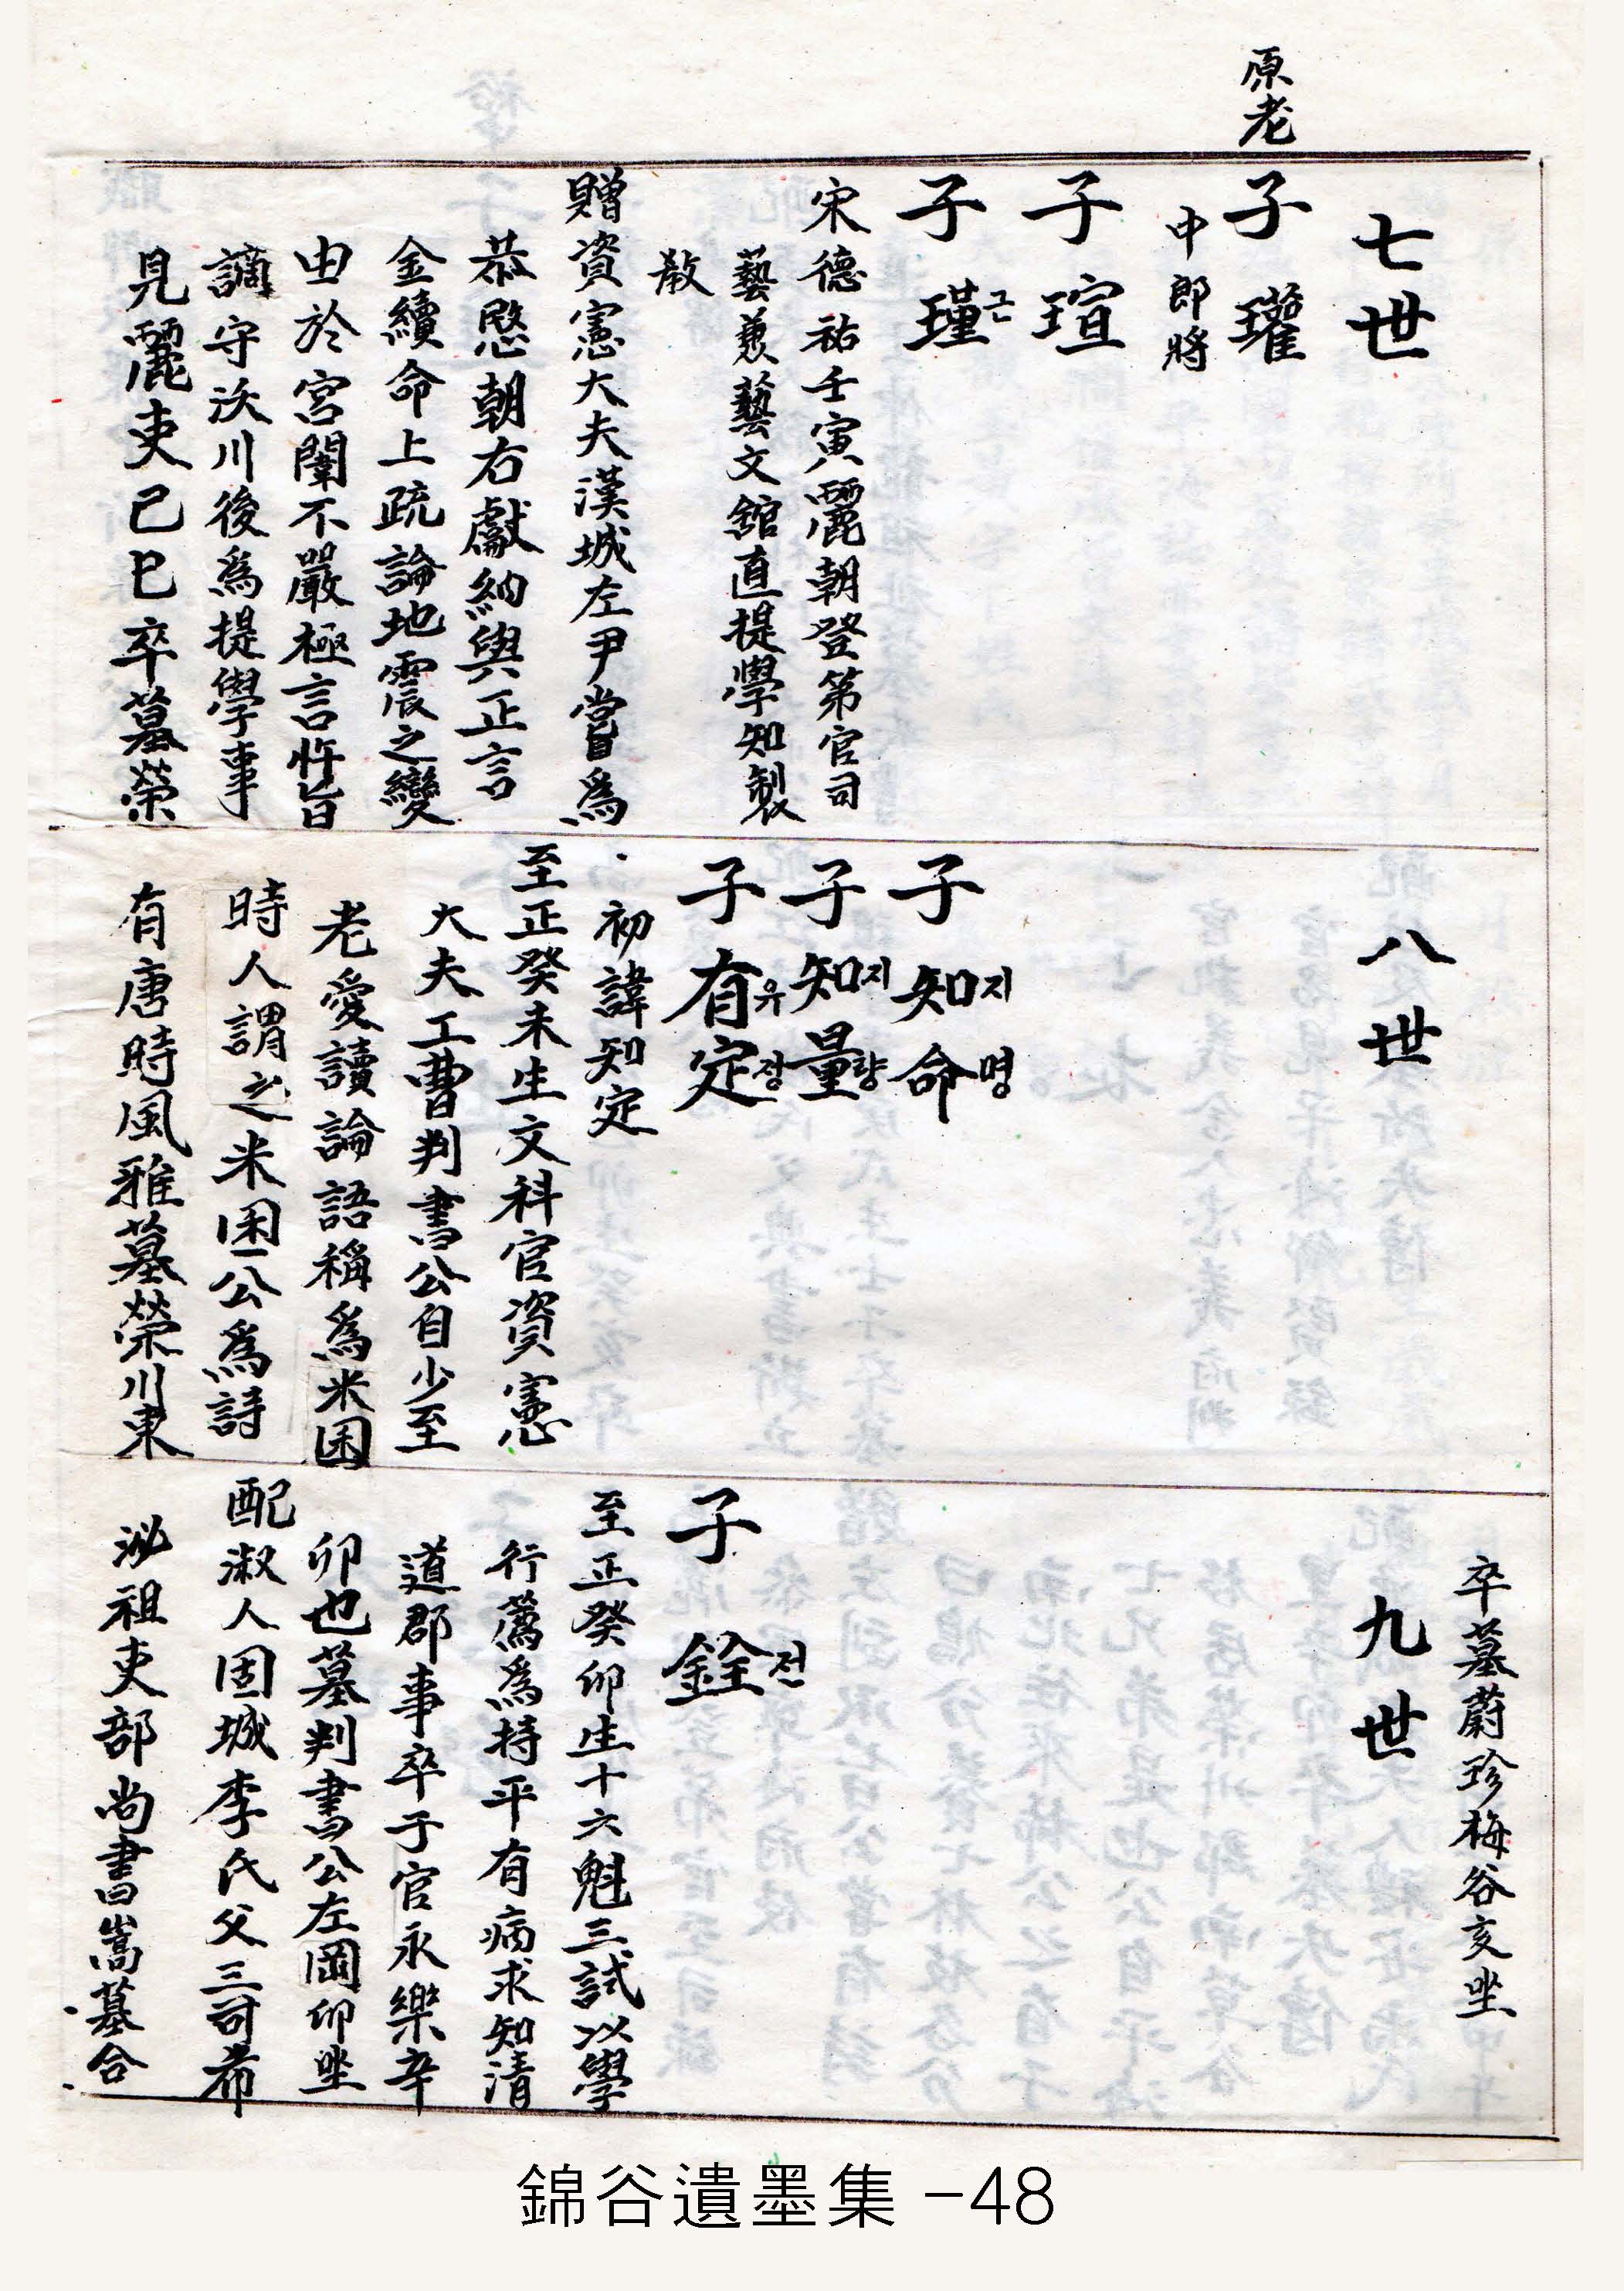 原老
七世
子 瓘
中郎將
子 瑄
子 瑾 근
宋德祐壬寅麗朝登第官司
藝兼藝文舘直提學知製
敎
贈資憲大夫漢城左尹嘗爲
恭愍朝右獻納與正言
金續命上疏論地震之變
由於宮闈不嚴極言忤旨
謫守沃川後爲提學事
見麗吏己巳卒墓榮
八世
子 知命 지명
子 知量 지량
子 有定 유정
初諱知定
至正癸未生文科官資憲
大夫工曹判書公自少至
老愛讀論語稱爲米囷
時人謂之米囷公爲詩
有唐時風雅墓榮川東
卒墓蔚珍梅谷亥坐
九世
子 銓 전
至正癸卯生十六魁三試以學
行薦爲持平有病求知清
道郡事卒于官永樂辛
卯也墓判書公左岡卯坐
配淑人固城李氏父三司希
泌祖吏部尚書嵩墓合
錦谷遺墨集 -48